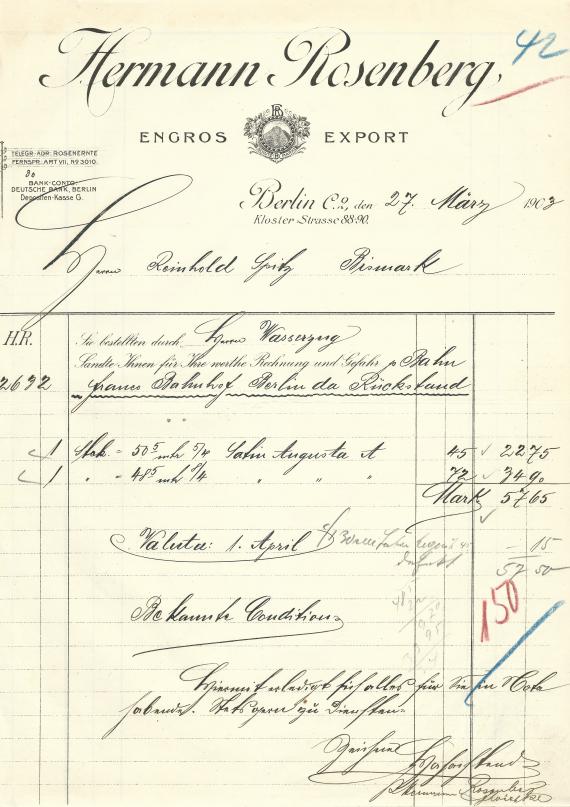 42
Hermann Rosenberg,
ENGROS EXPORT
TELEGR.-ADR: ROSENERNTE
FERNSPR.: AMT VII, Nº 3010.
BANK-CONTO:
DEUTSCHE BANK, BERLIN
Depositen-Kasse G.
Berlin C.2, den 27. März 1903
Kloster Strasse 88-90.
Herrn Reinhold Spitz Bismark
H.R. Sie bestellten durch Herrn Wasserzug
Sandte Ihnen für Ihre werthe Rechnung und Gefahr p Bahn
2692 franco Bahnhof Berlin da Rückstand
" "
1 Stck = 50⁵ mtr 5/4 Satin Augusta A 45 22 75
1 " = 48⁵ mtr 9/4 " " " 72 34 90
Mark 57 65
Valuta: 1. April — 15
57 50
150
Bekannte Condition
Hiermit erledigt sich alles für Sie in Nota
habende. Stets gern zu Diensten
Zeichne Hochachtend
Rosenberg